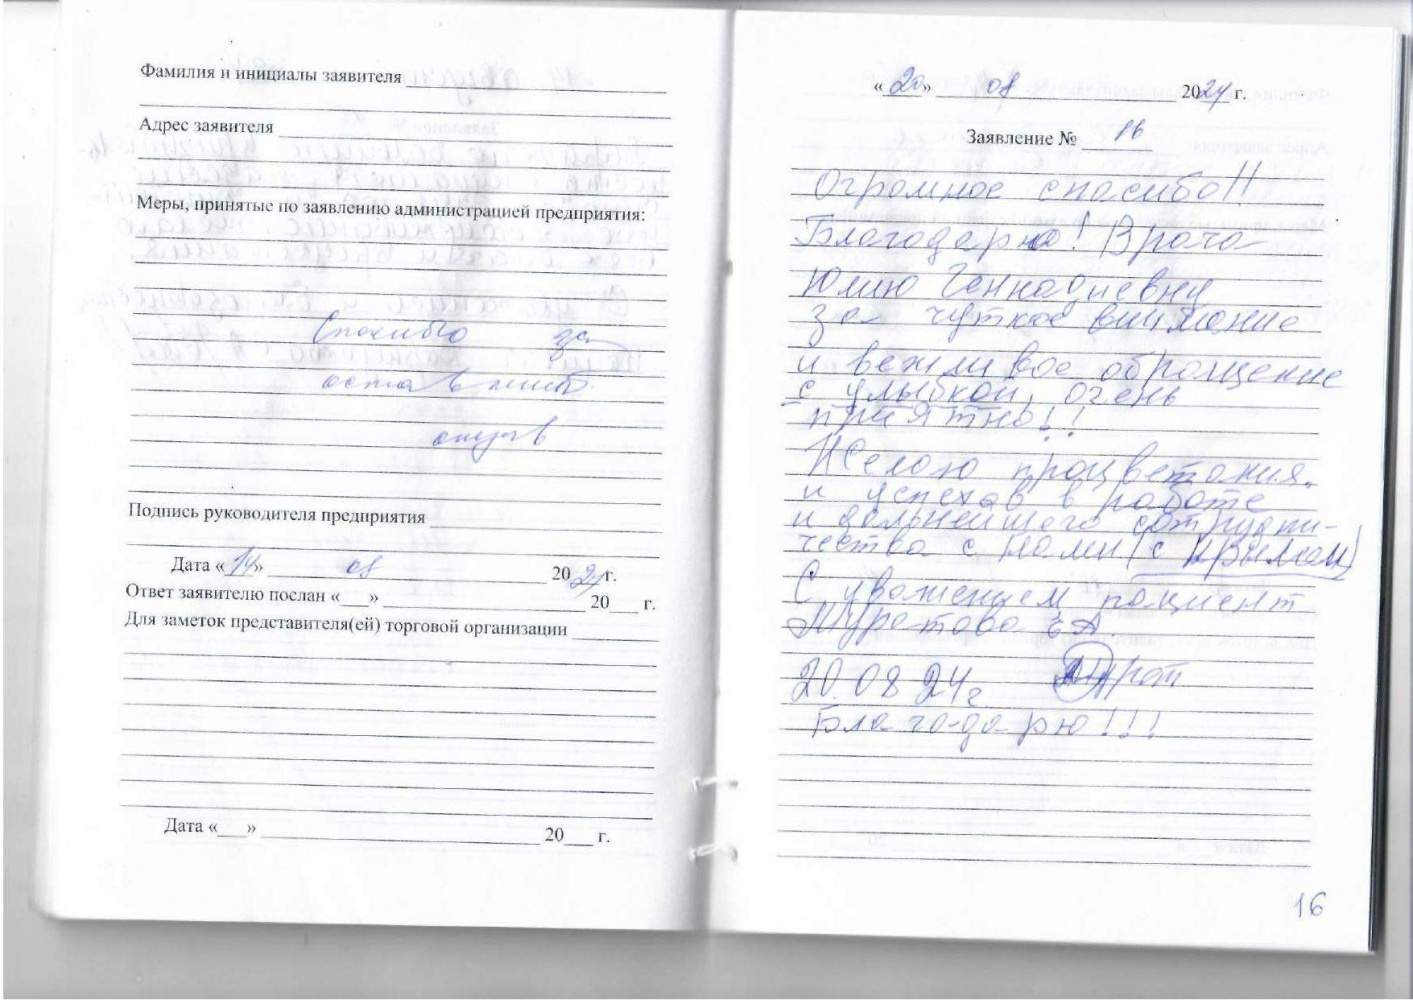 Фамилия и инициалы заявителя
Адрес заявителя
Меры, принятые по заявлению администрацией предприятия:
Спасибо за
оставленный
отзыв
Подпись руководителя предприятия
Дата «14» 08 2024г.
Ответ заявителю послан «___» 20___ г.
Для заметок представителя(ей) торговой организации
Дата «___» 20___ г.
«20» 08 2024 г.
Заявление № 16
Огромное спасибо!!
Благодарю! Врача
Юлию Геннадиевну
за чуткое внимание
и вежливое обращение
с улыбкой, очень
приятно!!
Желаю процветания.
и успехов в работе
и дальнейшего сотрудни-
чества с нами (с Крымом)
С уважением пациент
Муратова Е А
20.08 24г.
Благодарю!!!
16